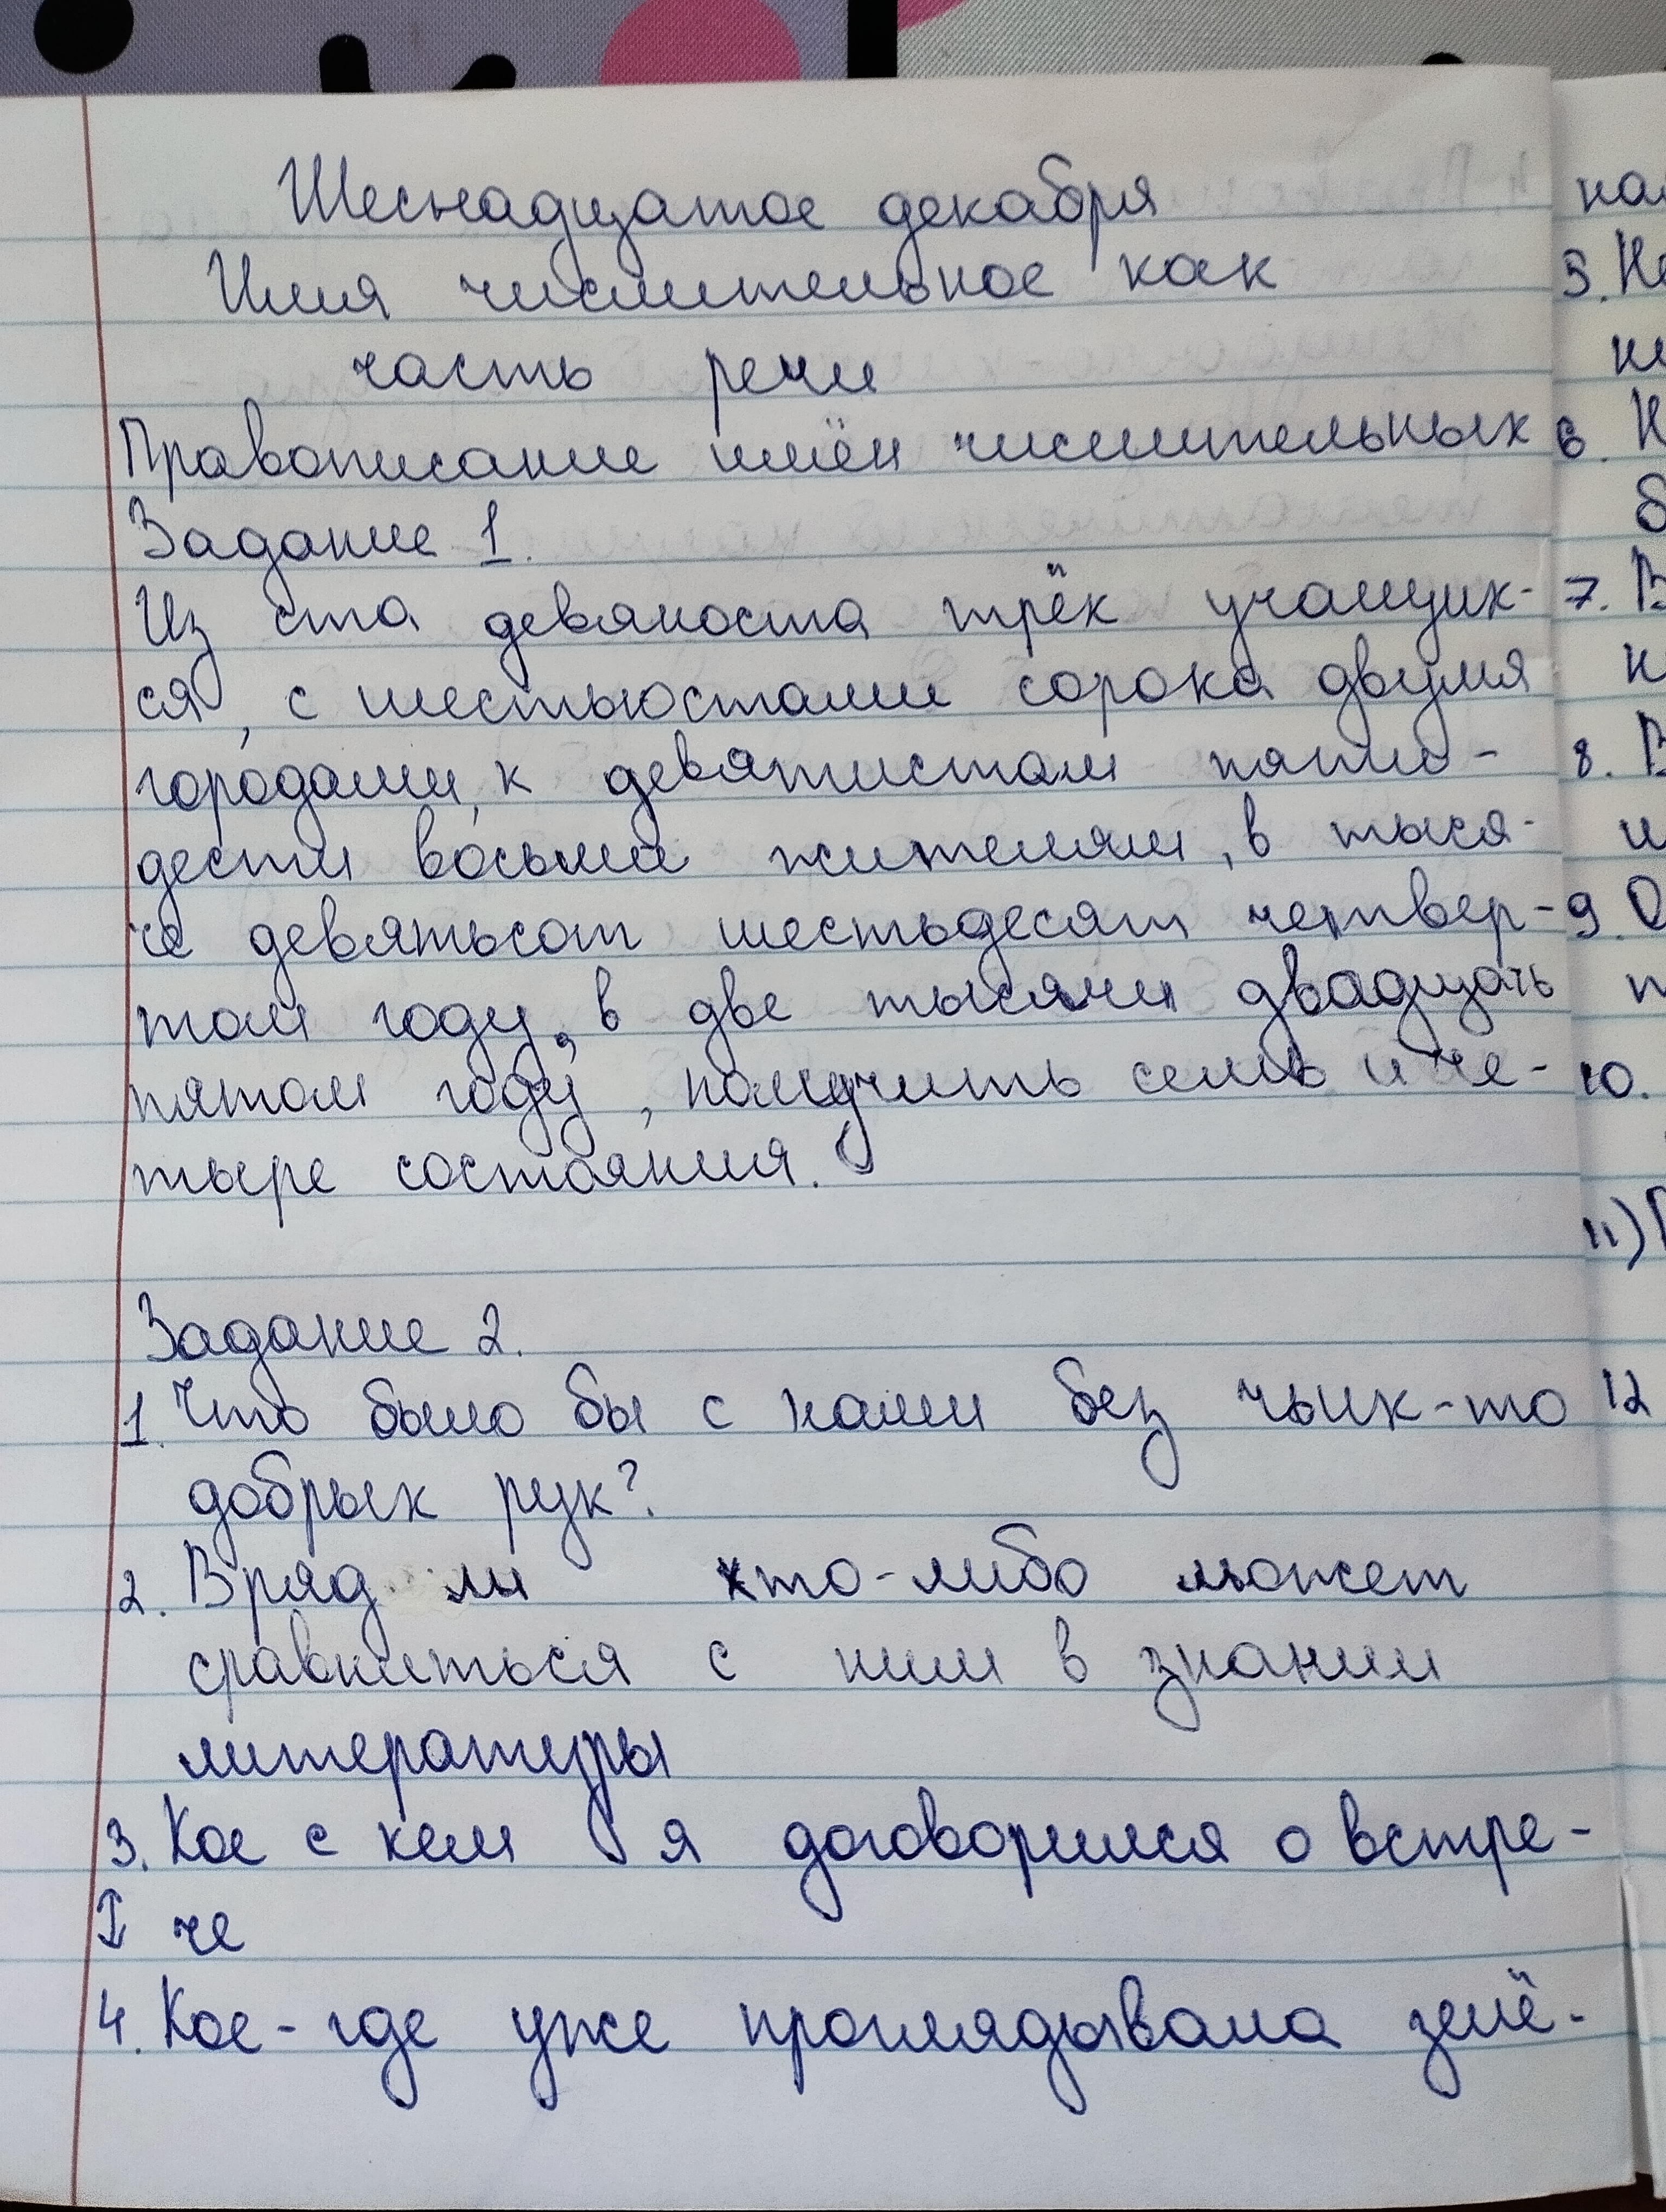 Шеснадцатое декабря
Имя числительное как
часть речи
Правописание имён числительных
Задание 1.
Из ста девяноста трёх учащих-
ся, с шестьюстами сорока двумя
городами, к девятистам пяти-
дести восьми жителям, в тыся-
че девятьсот шестьдесят четвер-
том году, в две тысячи двадцать
пятом году, получить семь и че-
тыре состояния.
Задание 2.
1. Что было бы с нами без чьих-то
добрых рук?
2. Вряд ли кто-либо может
сравниться с ним в знании
литературы
3. Кое с кем я договорился о встре-
↕ че
4. Кое-где уже проглядывала зелё-
5.
6.
7.
8.
9.
10.
11)
12